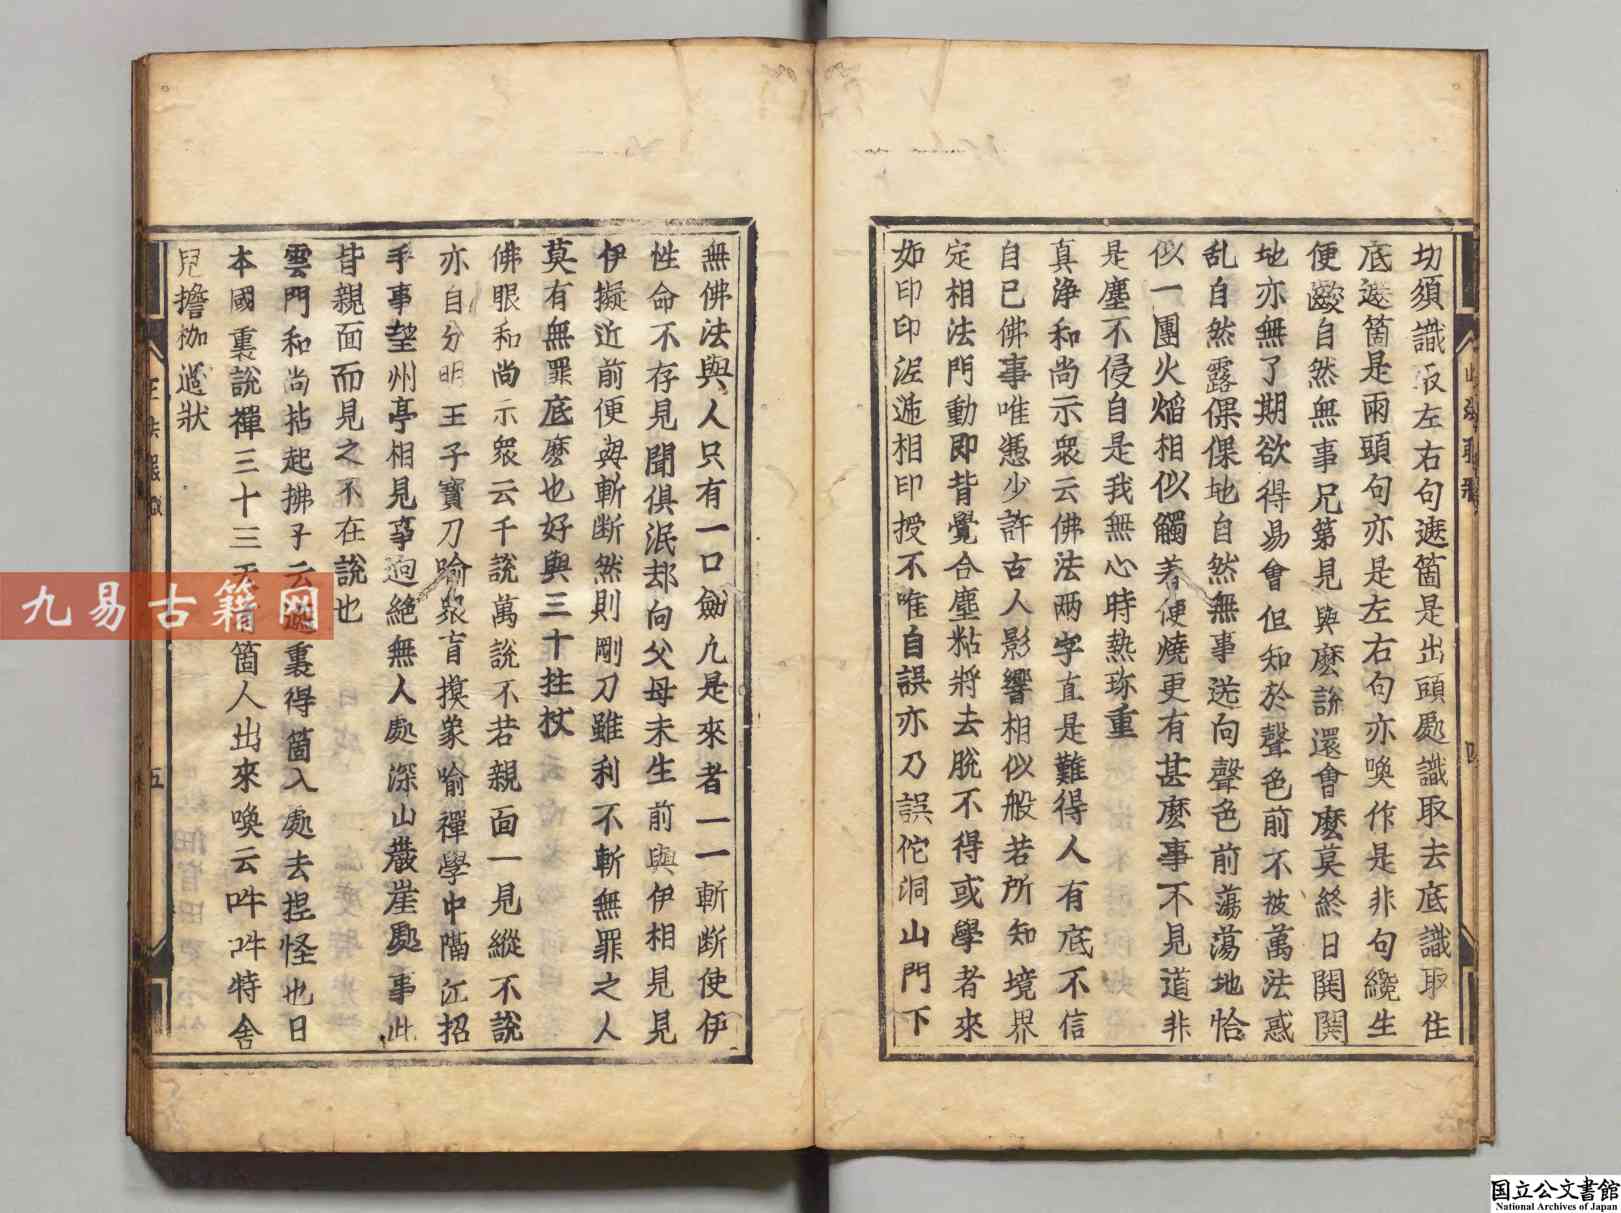 切須識取左右句遮箇是出頭處識取去底識取住
底遮箇是兩頭句亦是左右句亦喚作是非句纔生
便齩自然無事兄弟見與麽說還會麽莫終日閧閧
地亦無了期欲得易會但知於聲色前不被萬法惑
乱自然露倮倮地自然無事送向聲色前蕩蕩地恰
似一團火熖相似觸著便燒更有甚麽事不見道非
是塵不侵自是我無心時熱珎重
真淨和尚示衆云佛法兩字直是難得人有底不信
自己佛事唯慿少許古人影響相似般若所知境界
定相法門動即背覺合塵粘將去脫不得或學者來
如印印泥遞相印授不唯自誤亦乃誤佗洞山門下
無佛法與人只有一口劒凢是來者一一斬断使伊
性命不存見聞俱泯却向父母未生前與伊相見見
伊擬近前便與斬断然則剛刀雖利不斬無罪之人
莫有無罪底麽也好與三十拄杖
佛眼和尚示衆云千說萬說不若親面一見縱不說
亦自分明王子寶刀喻衆盲摸象喻禪學中隔江招
手事望州亭相見事逈絕無人處深山巖崖處事此
皆親面而見之不在說也
雲門和尚拈起拂子云遮裏得箇入處去捏怪也日
本國裏說禪三十三天有箇人出來喚云吽吽特舍
兒擔枷過狀
正法眼藏
五
九易古籍网
国立公文書館
National Archives of Japan